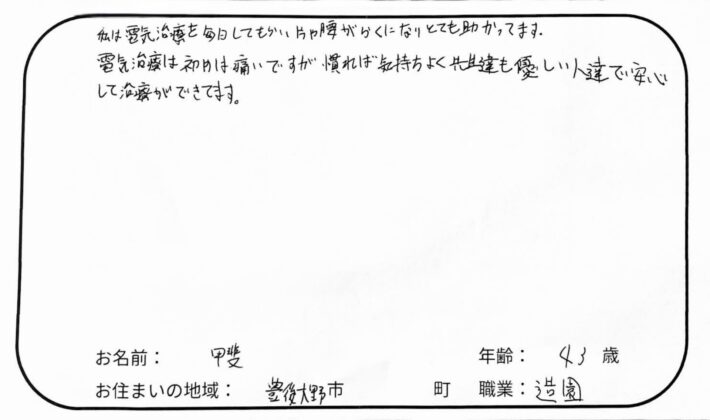 私は電気治療を毎日してもらい片や腰がらくになりとても助かってます。
電気治療は初めは痛いですが慣れば気持ちよく先生達も優しい人達で安心
して治療ができてます。
お名前： 甲斐 年齢： 43 歳
お住まいの地域： 豊後大野市 町 職業：造園